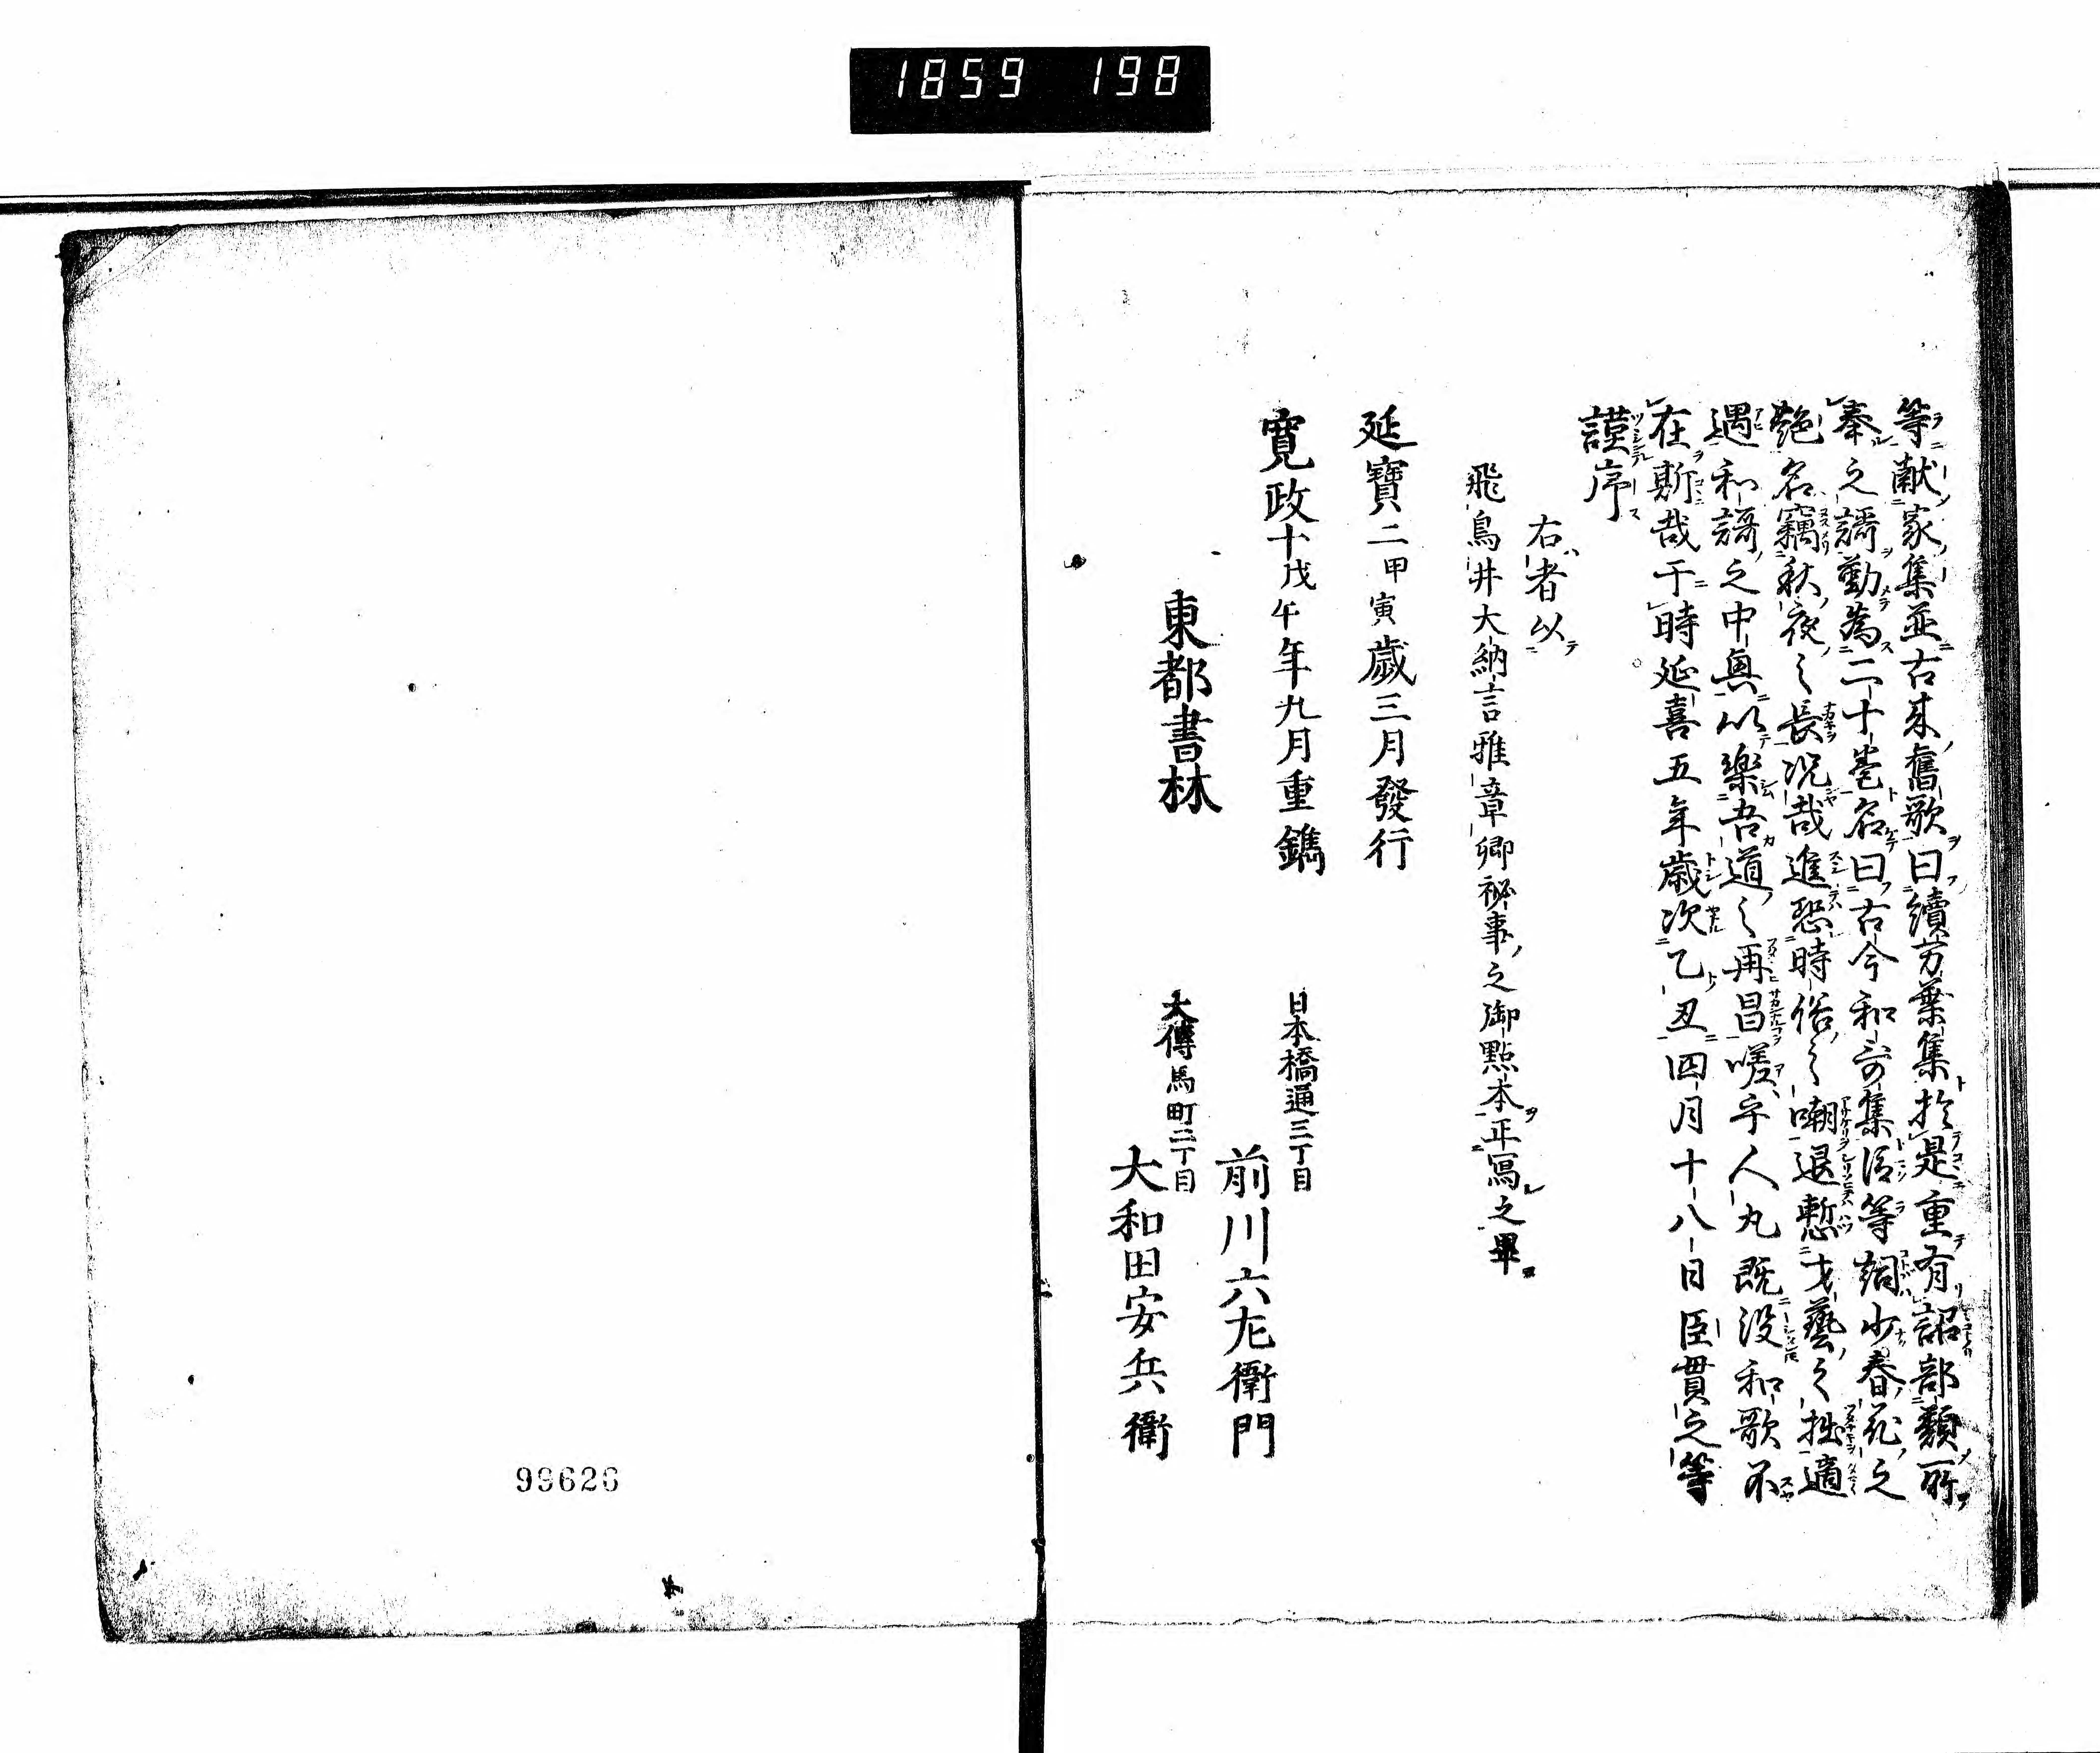 1859 198
等献家集並古来舊歌曰續万葉集於是重有詔部類所
奉之謌勒為二十巻名曰古今和哥集臣等詞少春花之
艶名竊秋夜之長況哉進恐時俗之嘲退慙才藝之拙適
遇和謌之中興以樂吾道之再昌嗟乎人丸既没和歌不
在斯哉于時延喜五年歳次乙丑四月十八日臣貫之等
謹序
右者以
飛鳥井大納言雅章卿祕事之御點本正寫之畢
延寶二甲寅歳三月發行
寛政十戊午年九月重鐫
東都書林
日本橋通三丁目
前川六左衛門
大傳馬町二丁目
大和田安兵衛
99626